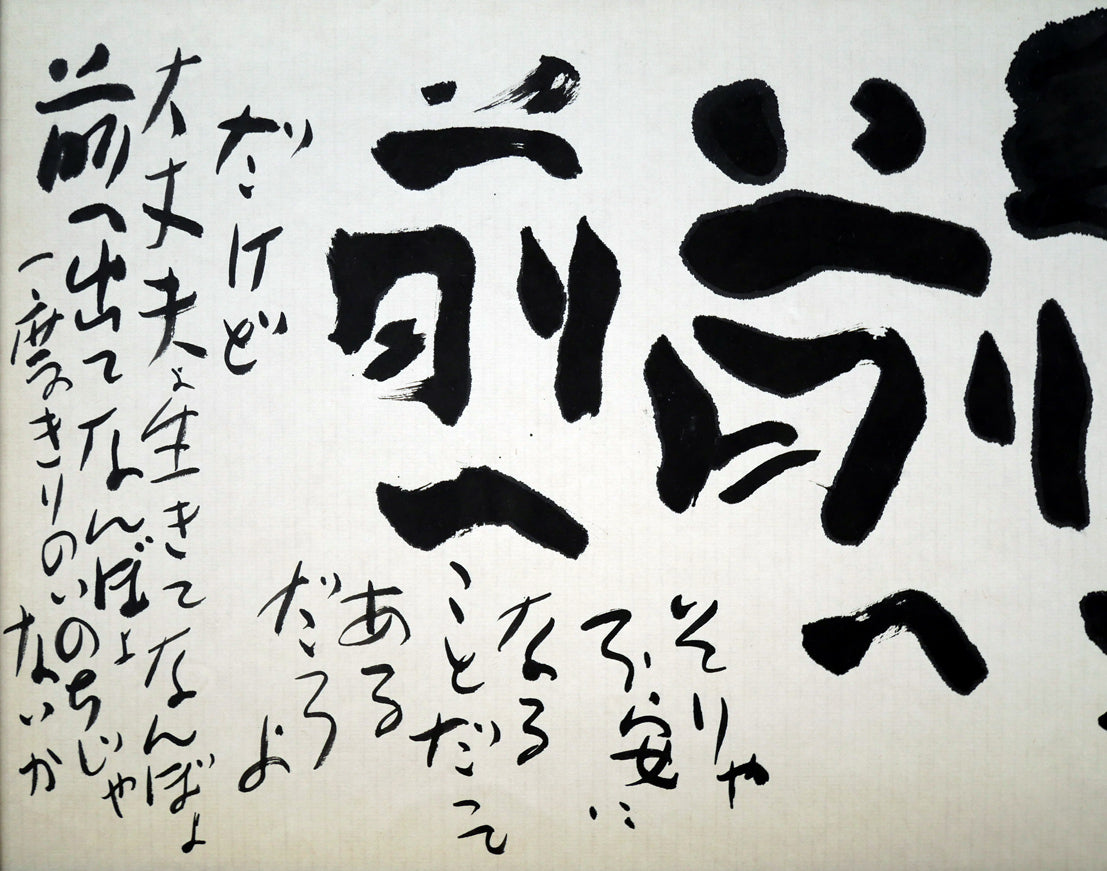 前へ
前へ
そりゃ
不安に
なる
ことだって
ある
だろうよ
だけど
大丈夫よ生きてなんぼよ
前へ出てなんぼよ
一度きりのいのちじゃ
ないか